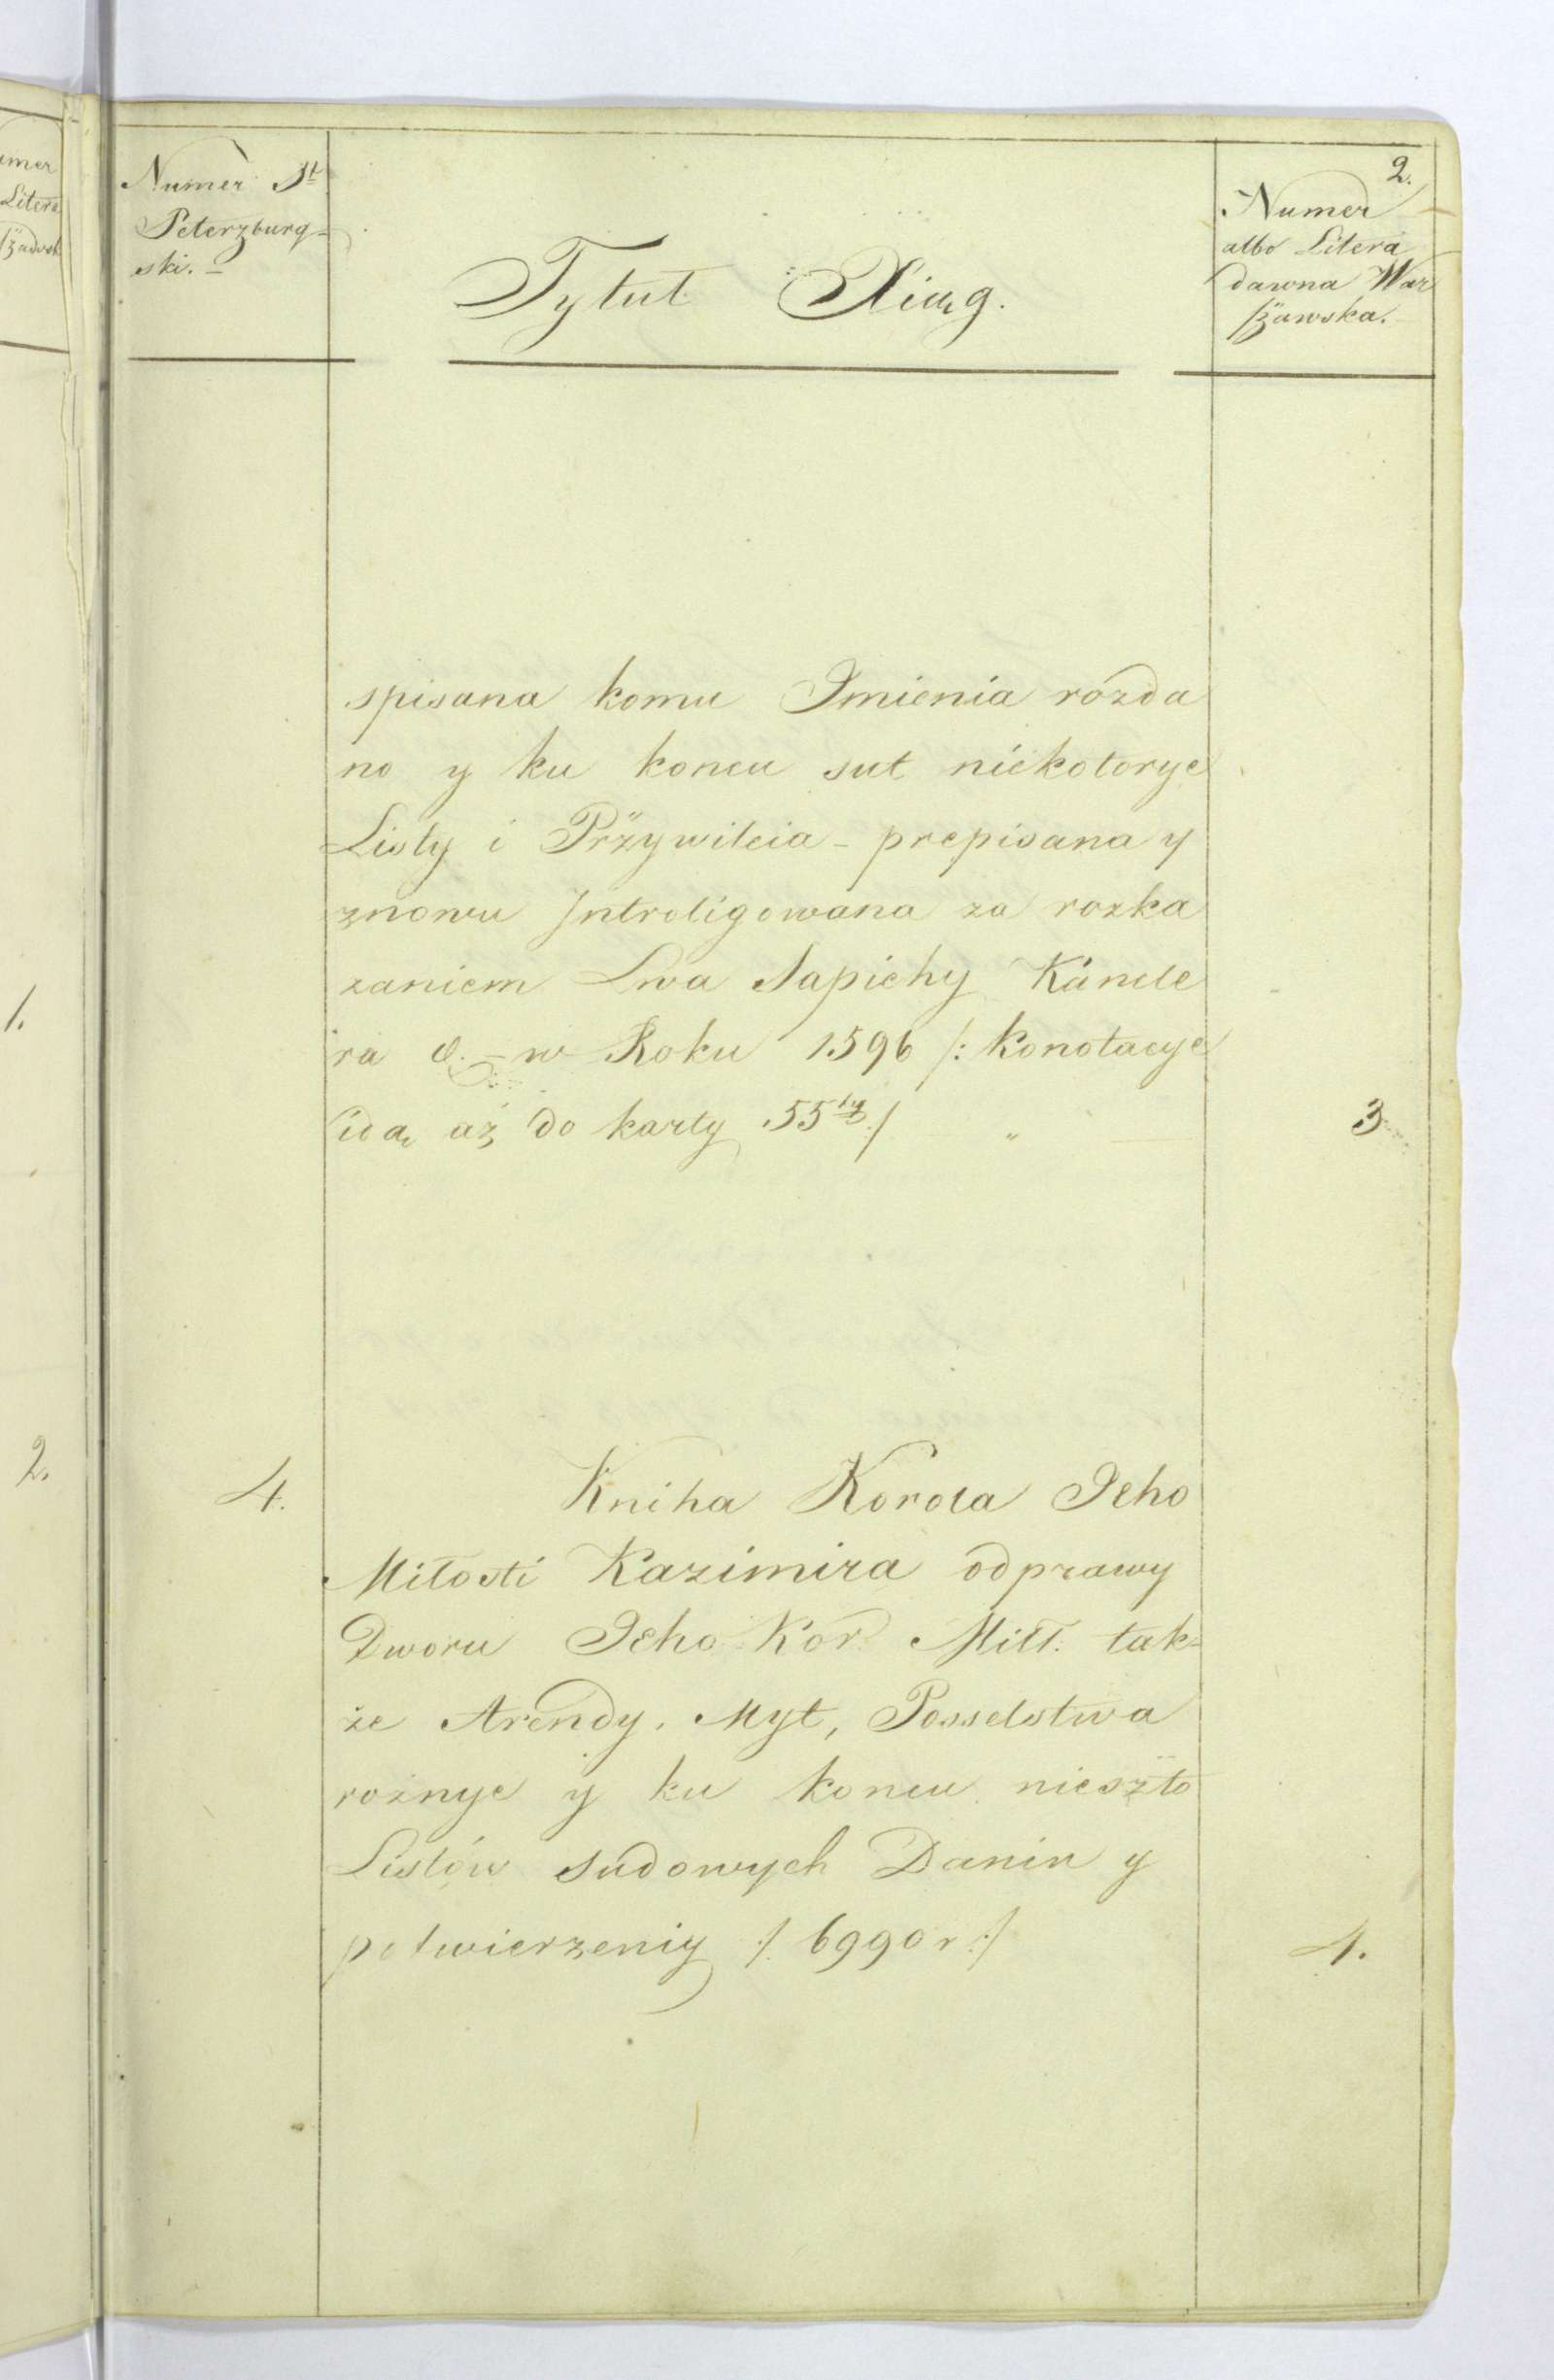 umer
Litera
szawsk
1.
2.
2.
Numer St
Peterzburg-
ski.
Tytuł Xiąg.
Numer
albo Litera
dawna War
szawska.
spisana komu Imienia rozda
no y ku koncu sut niekotorye
Listy i Przywileia - prepisana y
znowu Introligowana za rozka
zaniem Lwa Sapiehy Kancle
ra w Roku 1596 /: konotacye
ida, aż do karty 55tey /
3
4.
Kniha Korola Jeho
Miłosti Kazimira odprawy
Dworu Jeho Kor. Miłł. tak-
że Arendy, Myt, Posselstwa
rożnye y ku koncu nieszto
Listów sudowych Danin y
potwierzeniy /: 6990 r :/
4.